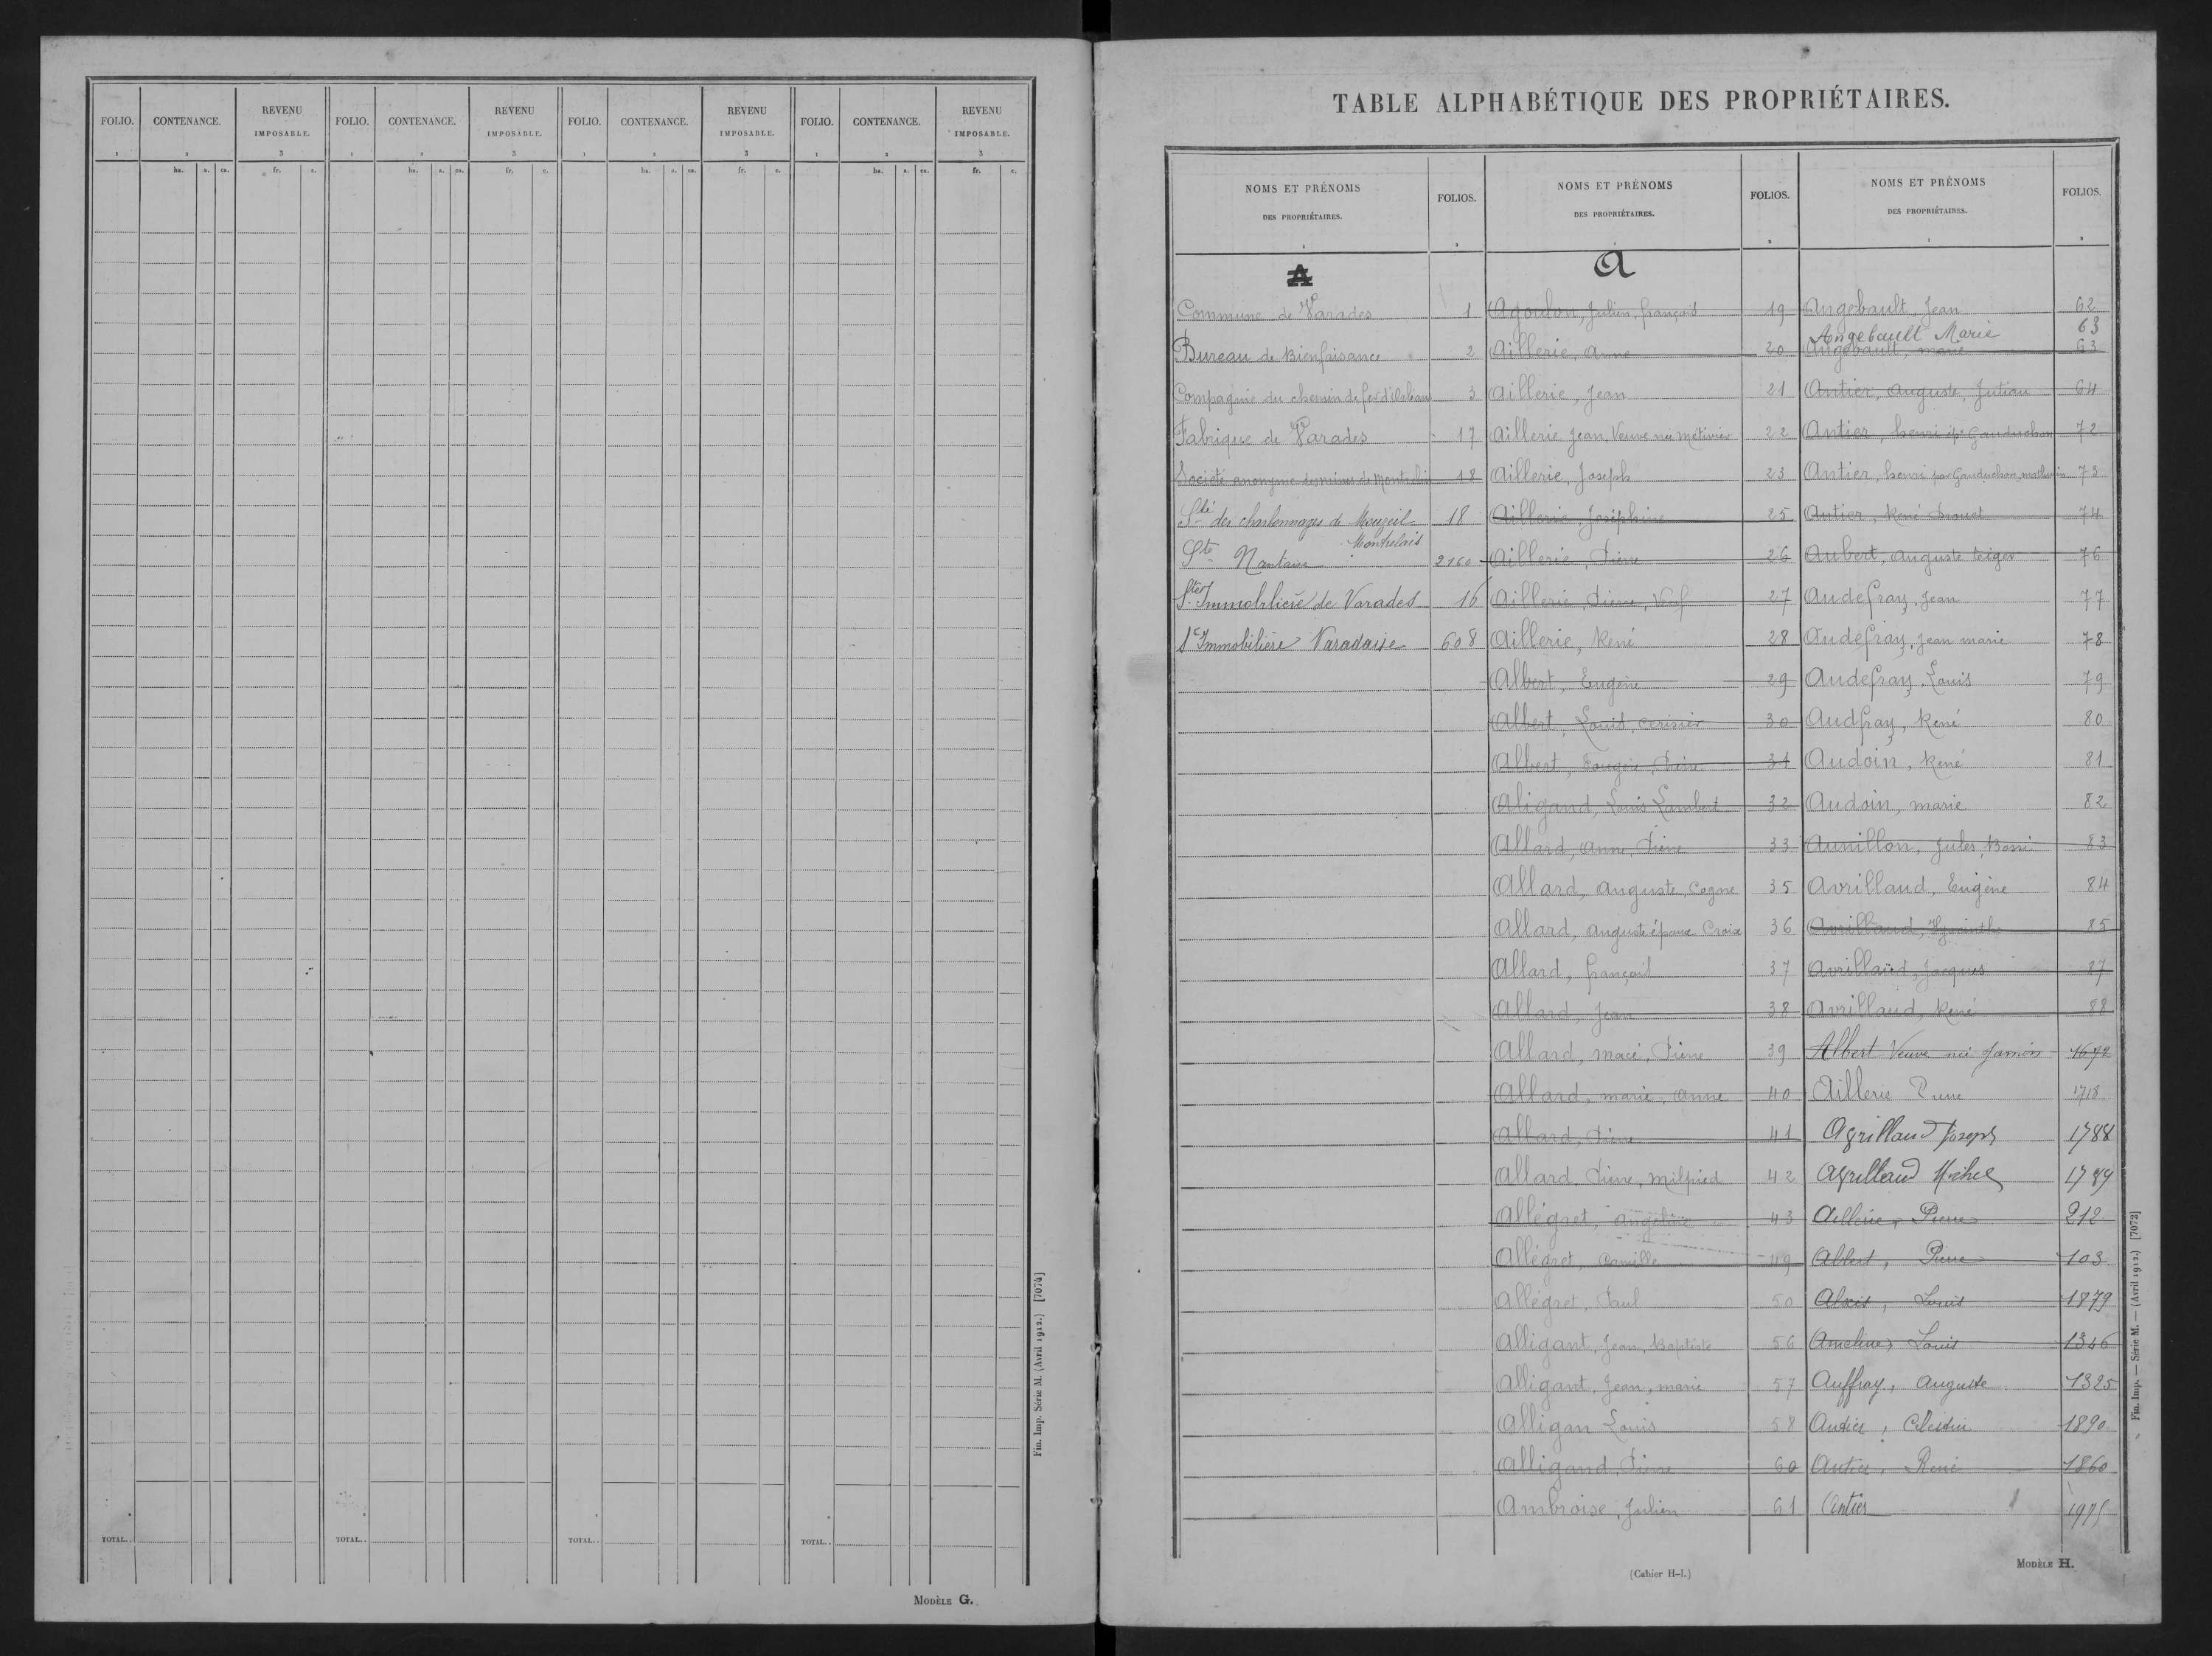 FOLIO. CONTENANCE. REVENU IMPOSABLE. FOLIO. CONTENANCE. REVENU IMPOSABLE. FOLIO. CONTENANCE. REVENU IMPOSABLE. FOLIO. CONTENANCE. REVENU IMPOSABLE.
1 2 3 1 2 3 1 2 3 1 2 3
ha. a. ca. fr. c. ha. a. ca. fr. c. ha. a. ca. fr. c. ha. a. ca. fr. c.
TOTAL.. TOTAL.. TOTAL.. TOTAL..
Fin. Imp. Série M. (Avril 1912.) [7074]
MODÈLE G.
TABLE ALPHABÉTIQUE DES PROPRIÉTAIRES.
NOMS ET PRÉNOMS DES PROPRIÉTAIRES. FOLIOS. NOMS ET PRÉNOMS DES PROPRIÉTAIRES. FOLIOS. NOMS ET PRÉNOMS DES PROPRIÉTAIRES. FOLIOS.
1 2 1 2 1 2
A
Commune de Varades 1
Bureau de Bienfaisance 2
Compagnie du chemin de fer d'Orléans 3
Fabrique de Varades 17
Société anonyme des mines de Montrelais 18
Sté des charbonnages de Mouzeil Montrelais 18
Sté Nantaise 2160
Sté Immobilière de Varades 16
Sté Immobilière Varadaise 608
A
Agoulon, Julien, françois 19
Aillerie, Anne 20
Aillerie, Jean 21
Aillerie Jean, Veuve née Métivier 22
Aillerie, Joseph 23
Aillerie, Joséphine 25
Aillerie, Pierre 26
Aillerie, Pierre, Veuf 27
Aillerie, René 28
Albert, Eugène 29
Albert, Louis, cerisier 30
Albert, Pierre 31
Aligand, Louis Lambert 32
Allard, Anne, Pierre 33
Allard, Auguste, Cogne 35
Allard, Auguste époux Croix 36
Allard, françois 37
Allard, Jean 38
Allard, macé, Pierre 39
Allard, marie, Anne 40
Allard, Pierre 41
Allard, Pierre, Milpied 42
Allégret, Angéline 43
Allégret, Camille 49
Allégret, Paul 50
Alligant, Jean, Baptiste 56
Alligant, Jean, marie 57
Alligan Louis 58
Alligand, Pierre 60
Ambroise, Julien 61
Angebault, Jean 62
Angebault Marie 63
Angebault, marie 63
Antier, Auguste, Julien 64
Antier, henri ép. Gauduchon 72
Antier, henri par Gauduchon, mathurin 73
Antier, René Drouet 74
Aubert, Auguste 76
Audefray, Jean 77
Audefray, Jean marie 78
Audefray, Louis 79
Audfray, René 80
Audoin, René 81
Audoin, marie 82
Aunillon, Jules, 83
Avrillaud, Eugène 84
Avrillaud, Hyacinthe 85
Avrillaud, Jacques 87
Avrillaud, René 88
Albert Veuve née Jamoin 1692
Aillerie Pierre 1718
Avrillaud Joseph 1788
Avrillaud Michel 1789
Aillerie, Pierre 212
Albert, Pierre 103
Alexis, Louis 1879
Ameline, Louis 1346
Auffray, Auguste 1325
Antier, Célestin 1890
Antier, René 1860
Antier 1975
Fin. Imp. — Série M. — (Avril 1912.) [7073]
(Cahier H-1.)
MODÈLE H.